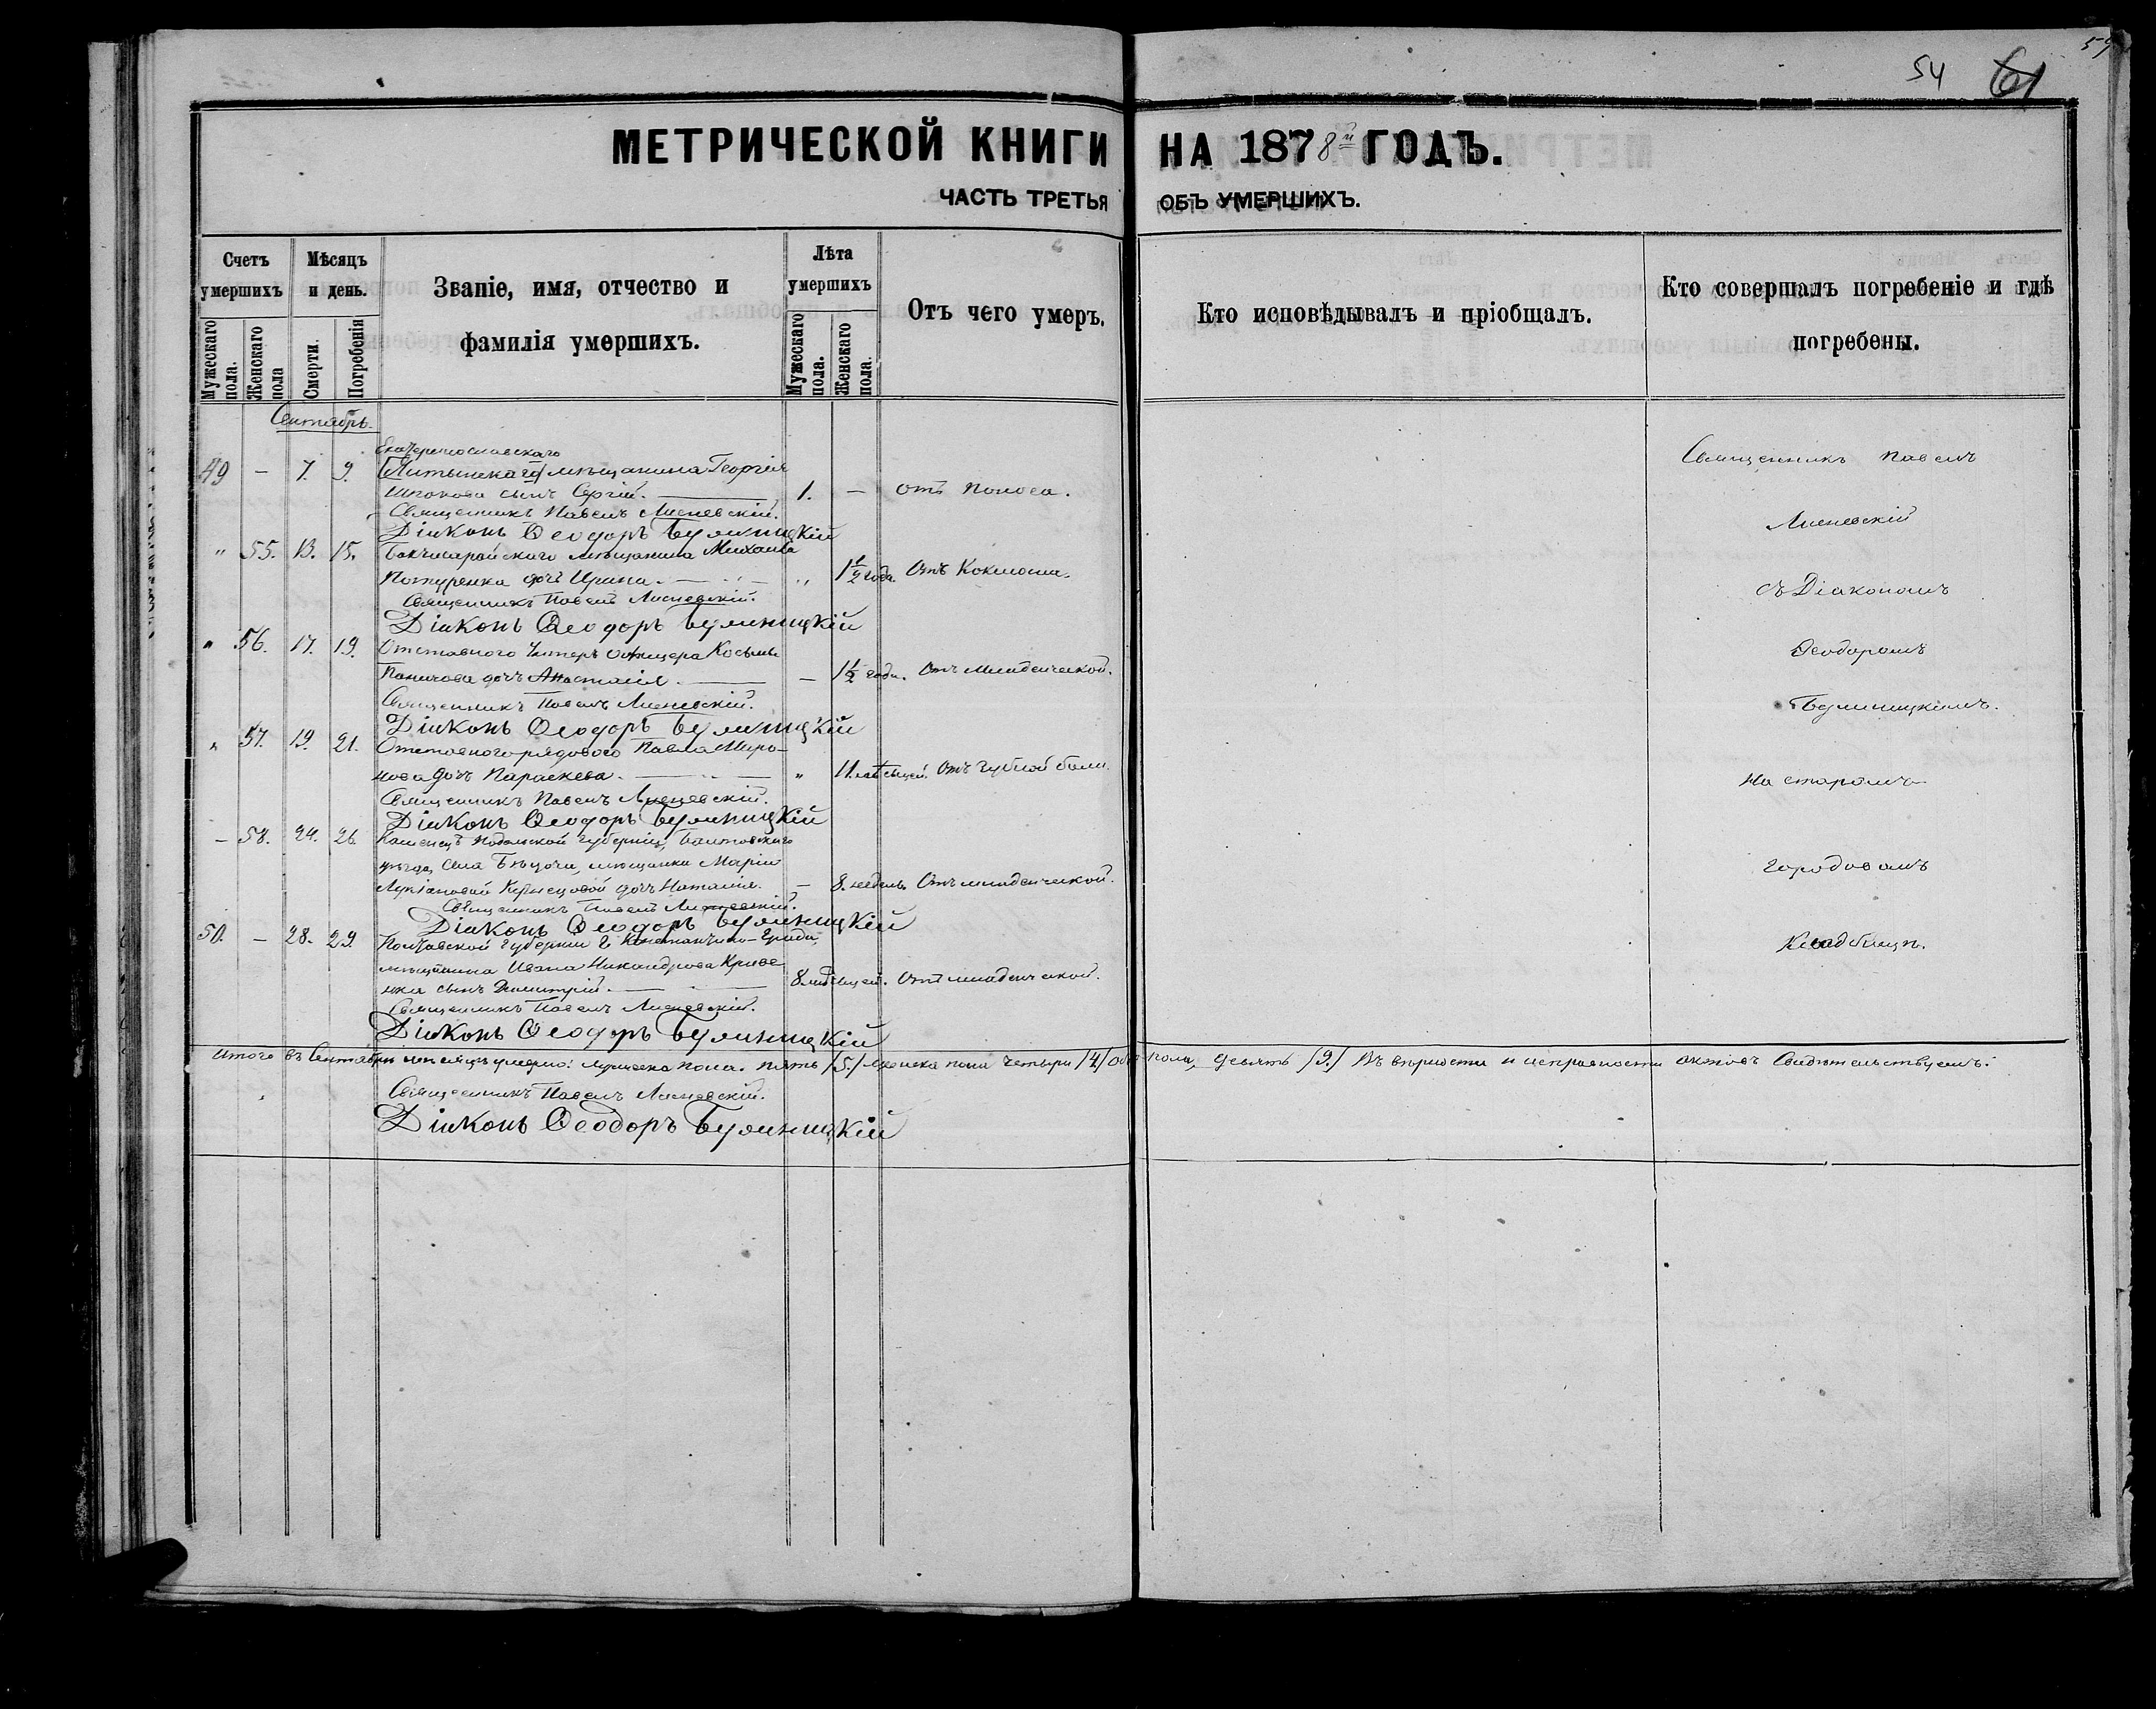 59
54 61
МЕТРИЧЕСКОЙ КНИГИ НА 1878й ГОДЪ.
ЧАСТЬ ТРЕТЬЯ ОБЪ УМЕРШИХЪ.
Счетъ умершихъ
Мужескаго пола.
Женскаго пола
Мѣсяцъ и день.
Смерти.
Погребенія
Званіе, имя, отчество и
фамилія умершихъ.
Лѣта умершихъ
Мужескаго пола.
Женскаго пола.
Отъ чего умеръ.
Кто исповѣдывалъ и пріобщалъ.
Кто совершалъ погребеніе и гдѣ
погребены.
Сентябрь.
Екатеринославскаго
49 – 7. 9. мѣщанина Георгія
сынъ Сергій. 1. – отъ поноса.
Священникъ Павелъ Лисневскій.
Діаконъ Ѳеодоръ Булиницкій
" 55. 13. 15. Бакчисарайскаго мѣщанина Михаила
дочь Ирина. " 1½ года Отъ Коклюша.
Священникъ Павелъ Лисневскій.
Діаконъ Ѳеодоръ Булиницкій
" 56. 17. 19. Отставного Унтеръ офицера Косьмы
дочь Анастасія. – 1½ года. Отъ младенческой.
Священникъ Павелъ Лисневскій.
Діаконъ Ѳеодоръ Булиницкій
" 57. 19. 21. Отставного рядового Павла Миро-
нова дочь Параскева. " 11 мѣсяцей. Отъ зубной боли
Священникъ Павелъ Лисневскій.
Діаконъ Ѳеодоръ Булиницкій
– 58. 24. 26. Каменецъ Подольской губерніи, Балтовскаго
уѣзда, села мѣщанки Маріи
Лукіановой Кузнецовой дочь Наталія. – 8. недель. Отъ младенческой.
Священникъ Павелъ Лисневскій.
Діаконъ Ѳеодоръ Булиницкій
50. – 28. 29. Полтавской губерніи г. Константино-Града,
мѣщанина Ивана Никандрова Криве
нка сынъ Димитрій. 8 мѣсяцей. Отъ младенческой.
Священникъ Павелъ Лисневскій.
Діаконъ Ѳеодоръ Булиницкій
Священникъ Павелъ
Лисневскій
съ Діакономъ
Ѳеодоромъ
Булиницкимъ.
На старомъ
городовомъ
Кладбищѣ.
Итого въ Сентябрѣ мѣсяцѣ умерло: мужеска пола. пять /5./ женска пола четыри /4/ обоего пола, девять /9./ Въ вѣрности и исправности актовъ Свидѣтельствуемъ:
Священникъ Павелъ Лисневскій.
Діаконъ Ѳеодоръ Булиницкій